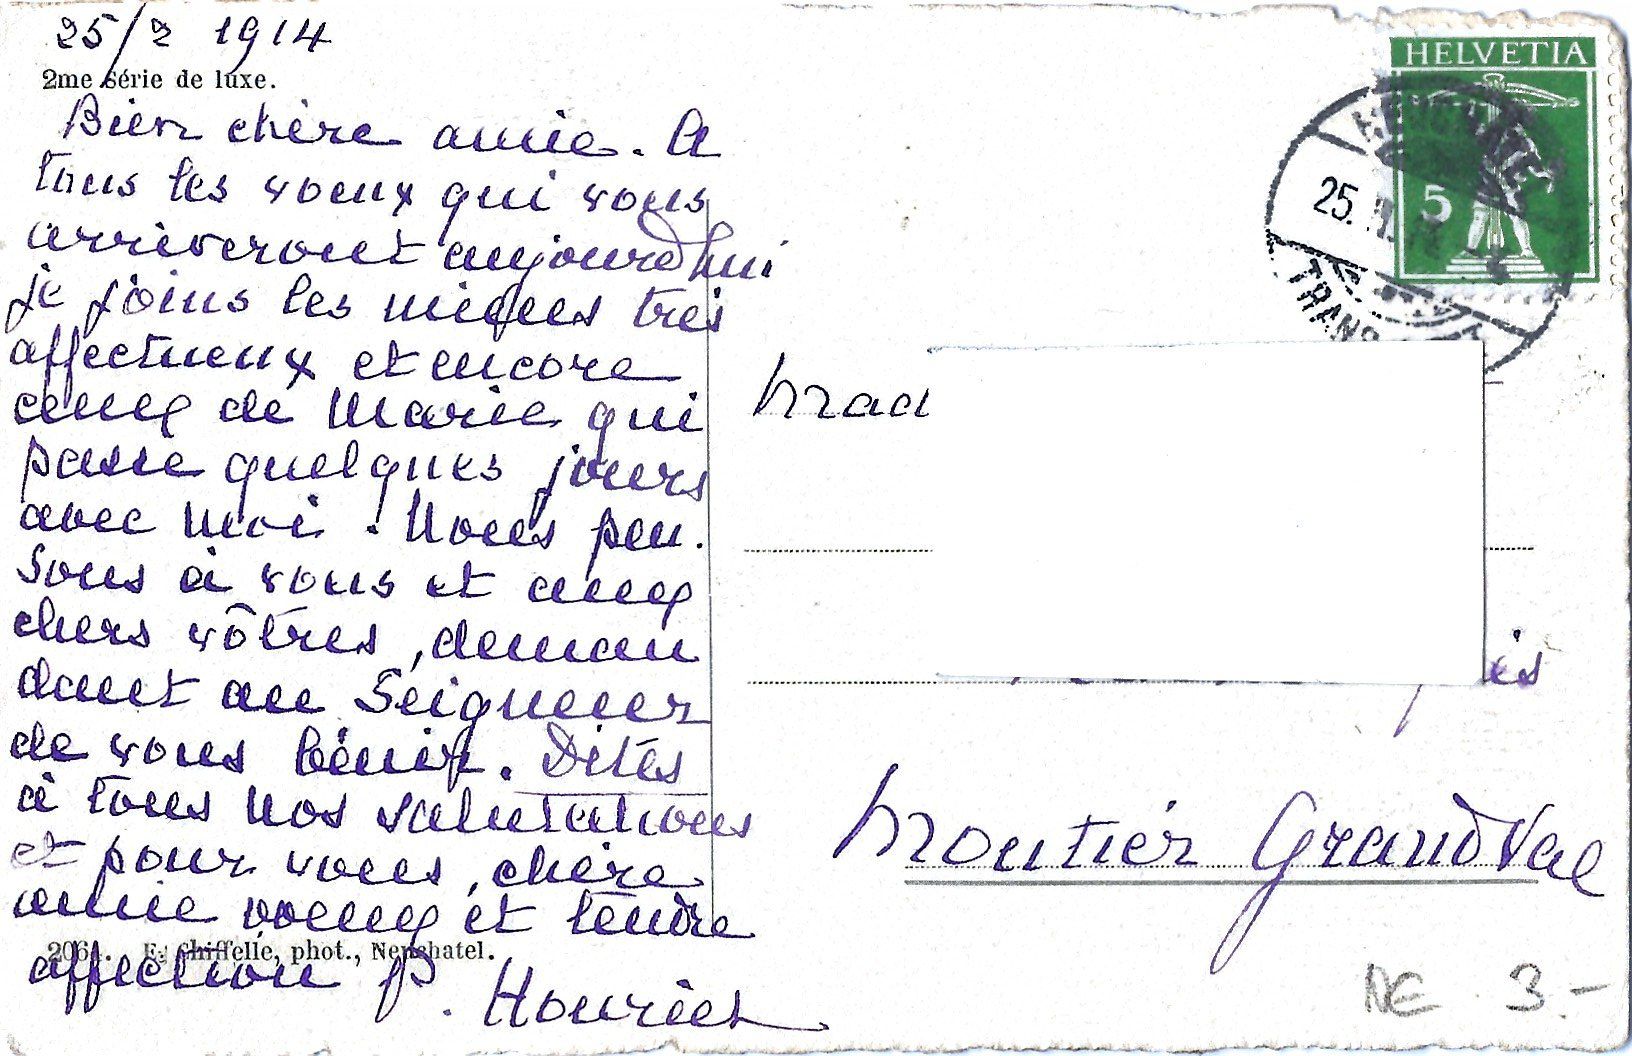 25/2 1914
2me série de luxe.
Bien chère amie. A
tous les voeux qui vous
arriveront aujourd'hui
je joins les miens très
affectueux et encore
ceux de Marie qui
passe quelques jours
avec moi. Nous pen.
sons à vous et aux
chers vôtres, deman
dant au Seigneur
de vous bénir. Dites
à tous nos salutations
et pour vous, chère
amie voeux et tendre
affection P. Houriet
2061. E. Chiffelle, phot., Neuchatel.
HELVETIA
5
25.
TRANS
Mad
is
Moutier GrandVal
NE 3.-